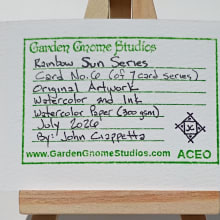 Garden Gnome Studios
Rainbow Sun Series
Card No. 6 (of 7 card series)
Original Artwork
Watercolor and Ink
Watercolor Paper (300 gsm)
July 2026
By: John Crappetta
www.GardenGnomeStudios.com ACEO